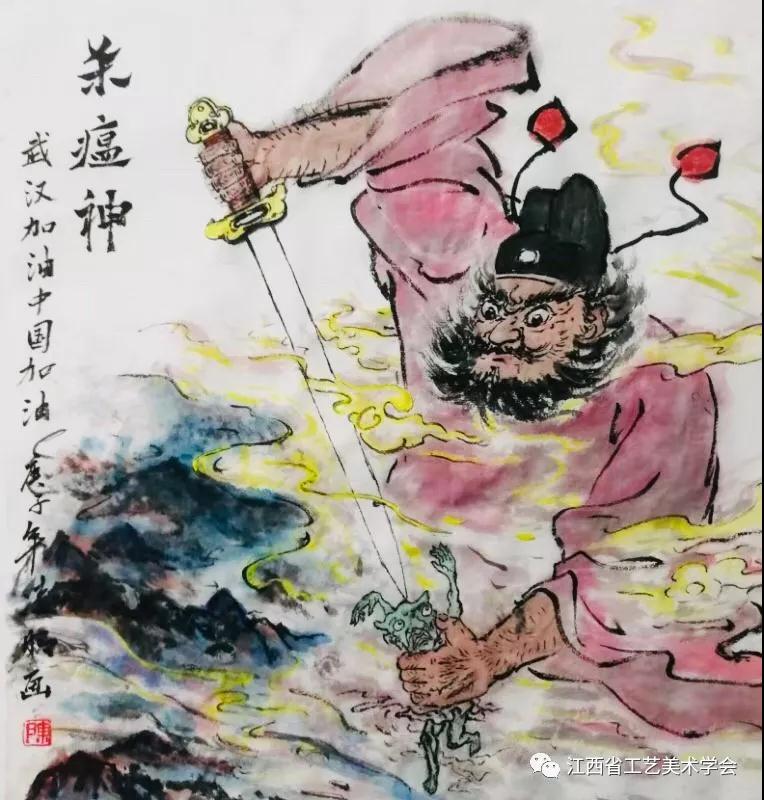 杀瘟神
武汉加油中国加油 庚子年 画
陳
江西省工艺美术学会